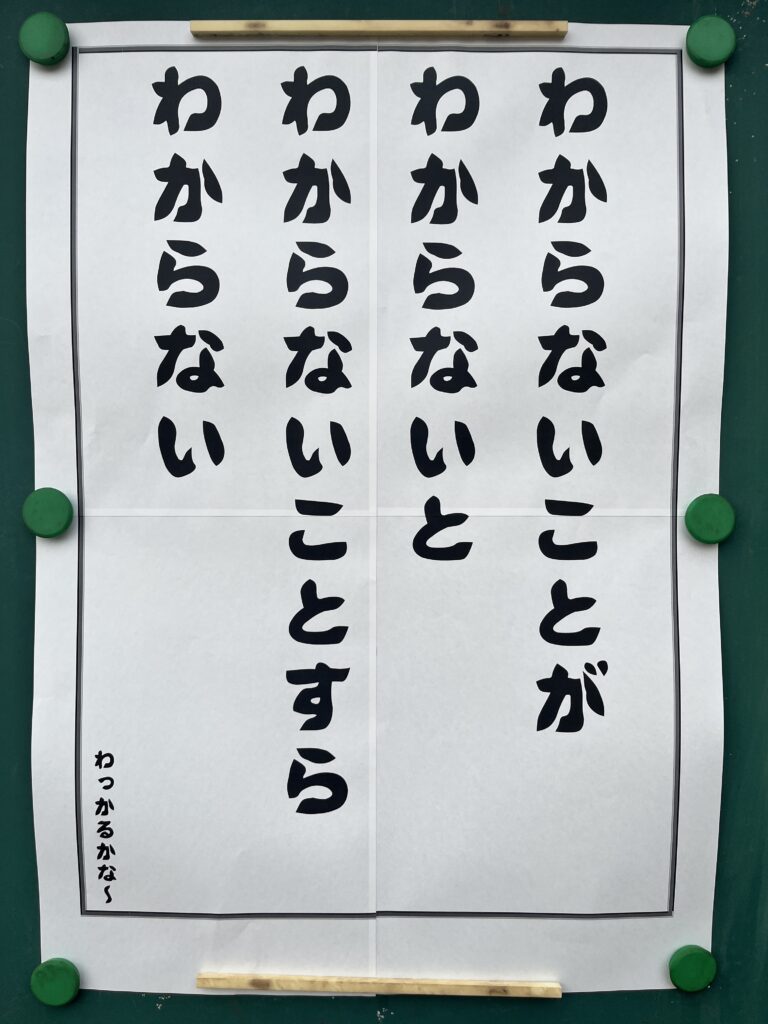 わからないことが
わからないと
わからないことすら
わからない
わっかるかな〜